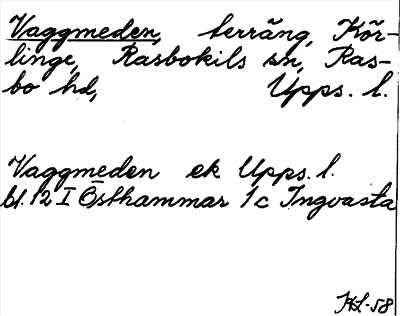 Vaggmeden, terräng, Kör-
linge, Rasbokils sn, Ras-
bo hd, Upps. l.
Vaggmeden ek Upps. l.
bl. 12 I Östhammar 1c Ingvasta
KL-58